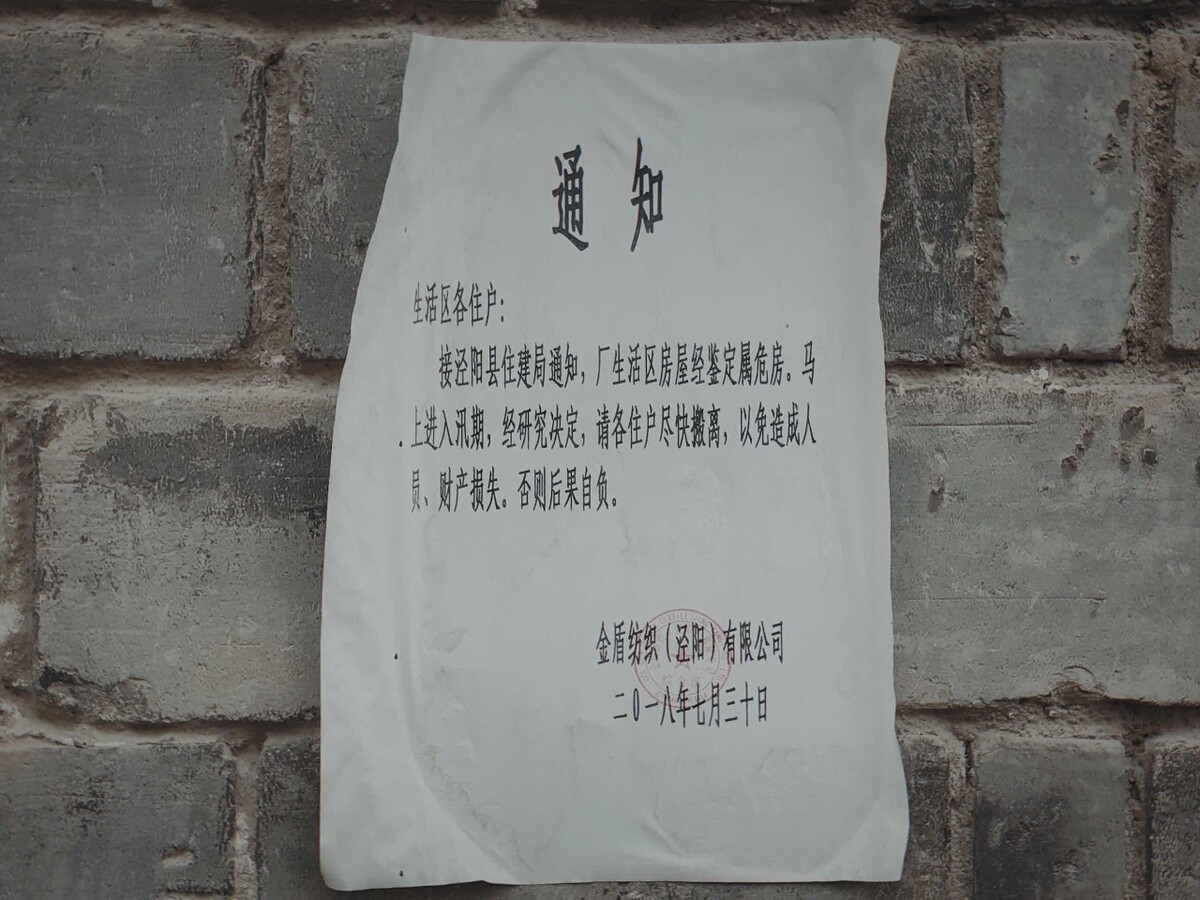 通知
生活区各住户：
接泾阳县住建局通知，厂生活区房屋经鉴定属危房。马
上进入汛期，经研究决定，请各住户尽快搬离，以免造成人
员、财产损失。否则后果自负。
金盾纺织（泾阳）有限公司
二0一八年七月三十日